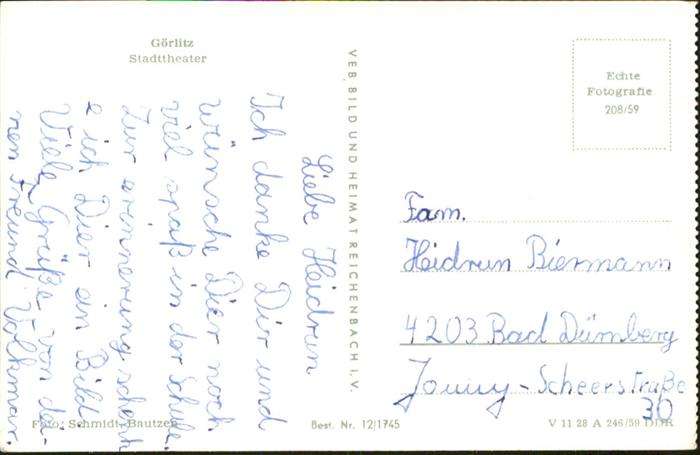 Görlitz
Stadttheater
Liebe Heidrun
Ich danke Dir und
wünsche Dier noch
viel spaß in der Schule.
Zur erinnerung schenk
e ich Dier ein Bild
Viele Grüße von dei-
nen Freund Volkmar.
Foto: Schmidt, Bautzen
VEB BILD UND HEIMAT REICHENBACH I. V.
Best. Nr. 12/1745
Echte
Fotografie
208/59
Fam.
Heidrun Biermann
4203 Bad Dürnberg
-Scheerstraße
30
V 11 28 A 246/59 DDR